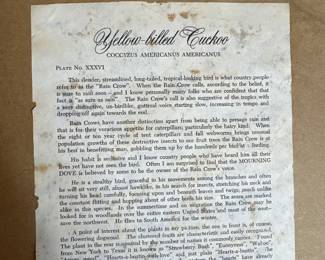 Yellow-billed Cuckoo
COCCYZUS AMERICANUS AMERICANUS
PLATE NO. XXXVI
This slender, streamlined, long-tailed, tropical-looking bird is what country people
refer to as the "Rain Crow". When the Rain Crow calls, according to the belief, it
is sure to rain soon - and I know personally many folks who are confident that that
fact is "as sure as rain". The Rain Crow's call is also suggestive of the tropics with
a very distinctive, un-birdlike, guttural voice starting slow, increasing in tempo and
dropping off again towards the end.
Rain Crows have another distinction apart from being able to presage rain and
that is for their voracious appetite for caterpillars, particularly the hairy kind! When
the eight or ten year cycle of tent caterpillars and fall webworms brings unusual
population growths of these destructive insects to our fruit trees the Rain Crow is at
his best in benefitting man, gobbling them up by the hundreds per bird at a feeding.
His habit is seclusive and I know county people who have heard him all their
lives yet have not seen the bird. Often I am surprised to find that the MOURNING
DOVE is believed by some to be the owner of the Rain Crow's voice.
He is a stealthy bird, graceful in his movements among the branches and often
he will sit very still, almost hawklike, in his search for insects, stretching his neck and
turning his head carefully, focusing upon and beneath leaves and twigs, much unlike
the constant flitting and hopping about of other birds his size. The sexes are marked
alike in this species. In the summertime and on migration the Rain Crow may be
looked for in woodlands over the entire eastern United States and most of the
west-ern. He flies to South America for the winter.
A point of interest about the plants in my
the flowering dogwood. The clustered
The plant is the rare
from New York to Texas it is known as "Strawberry Bush",